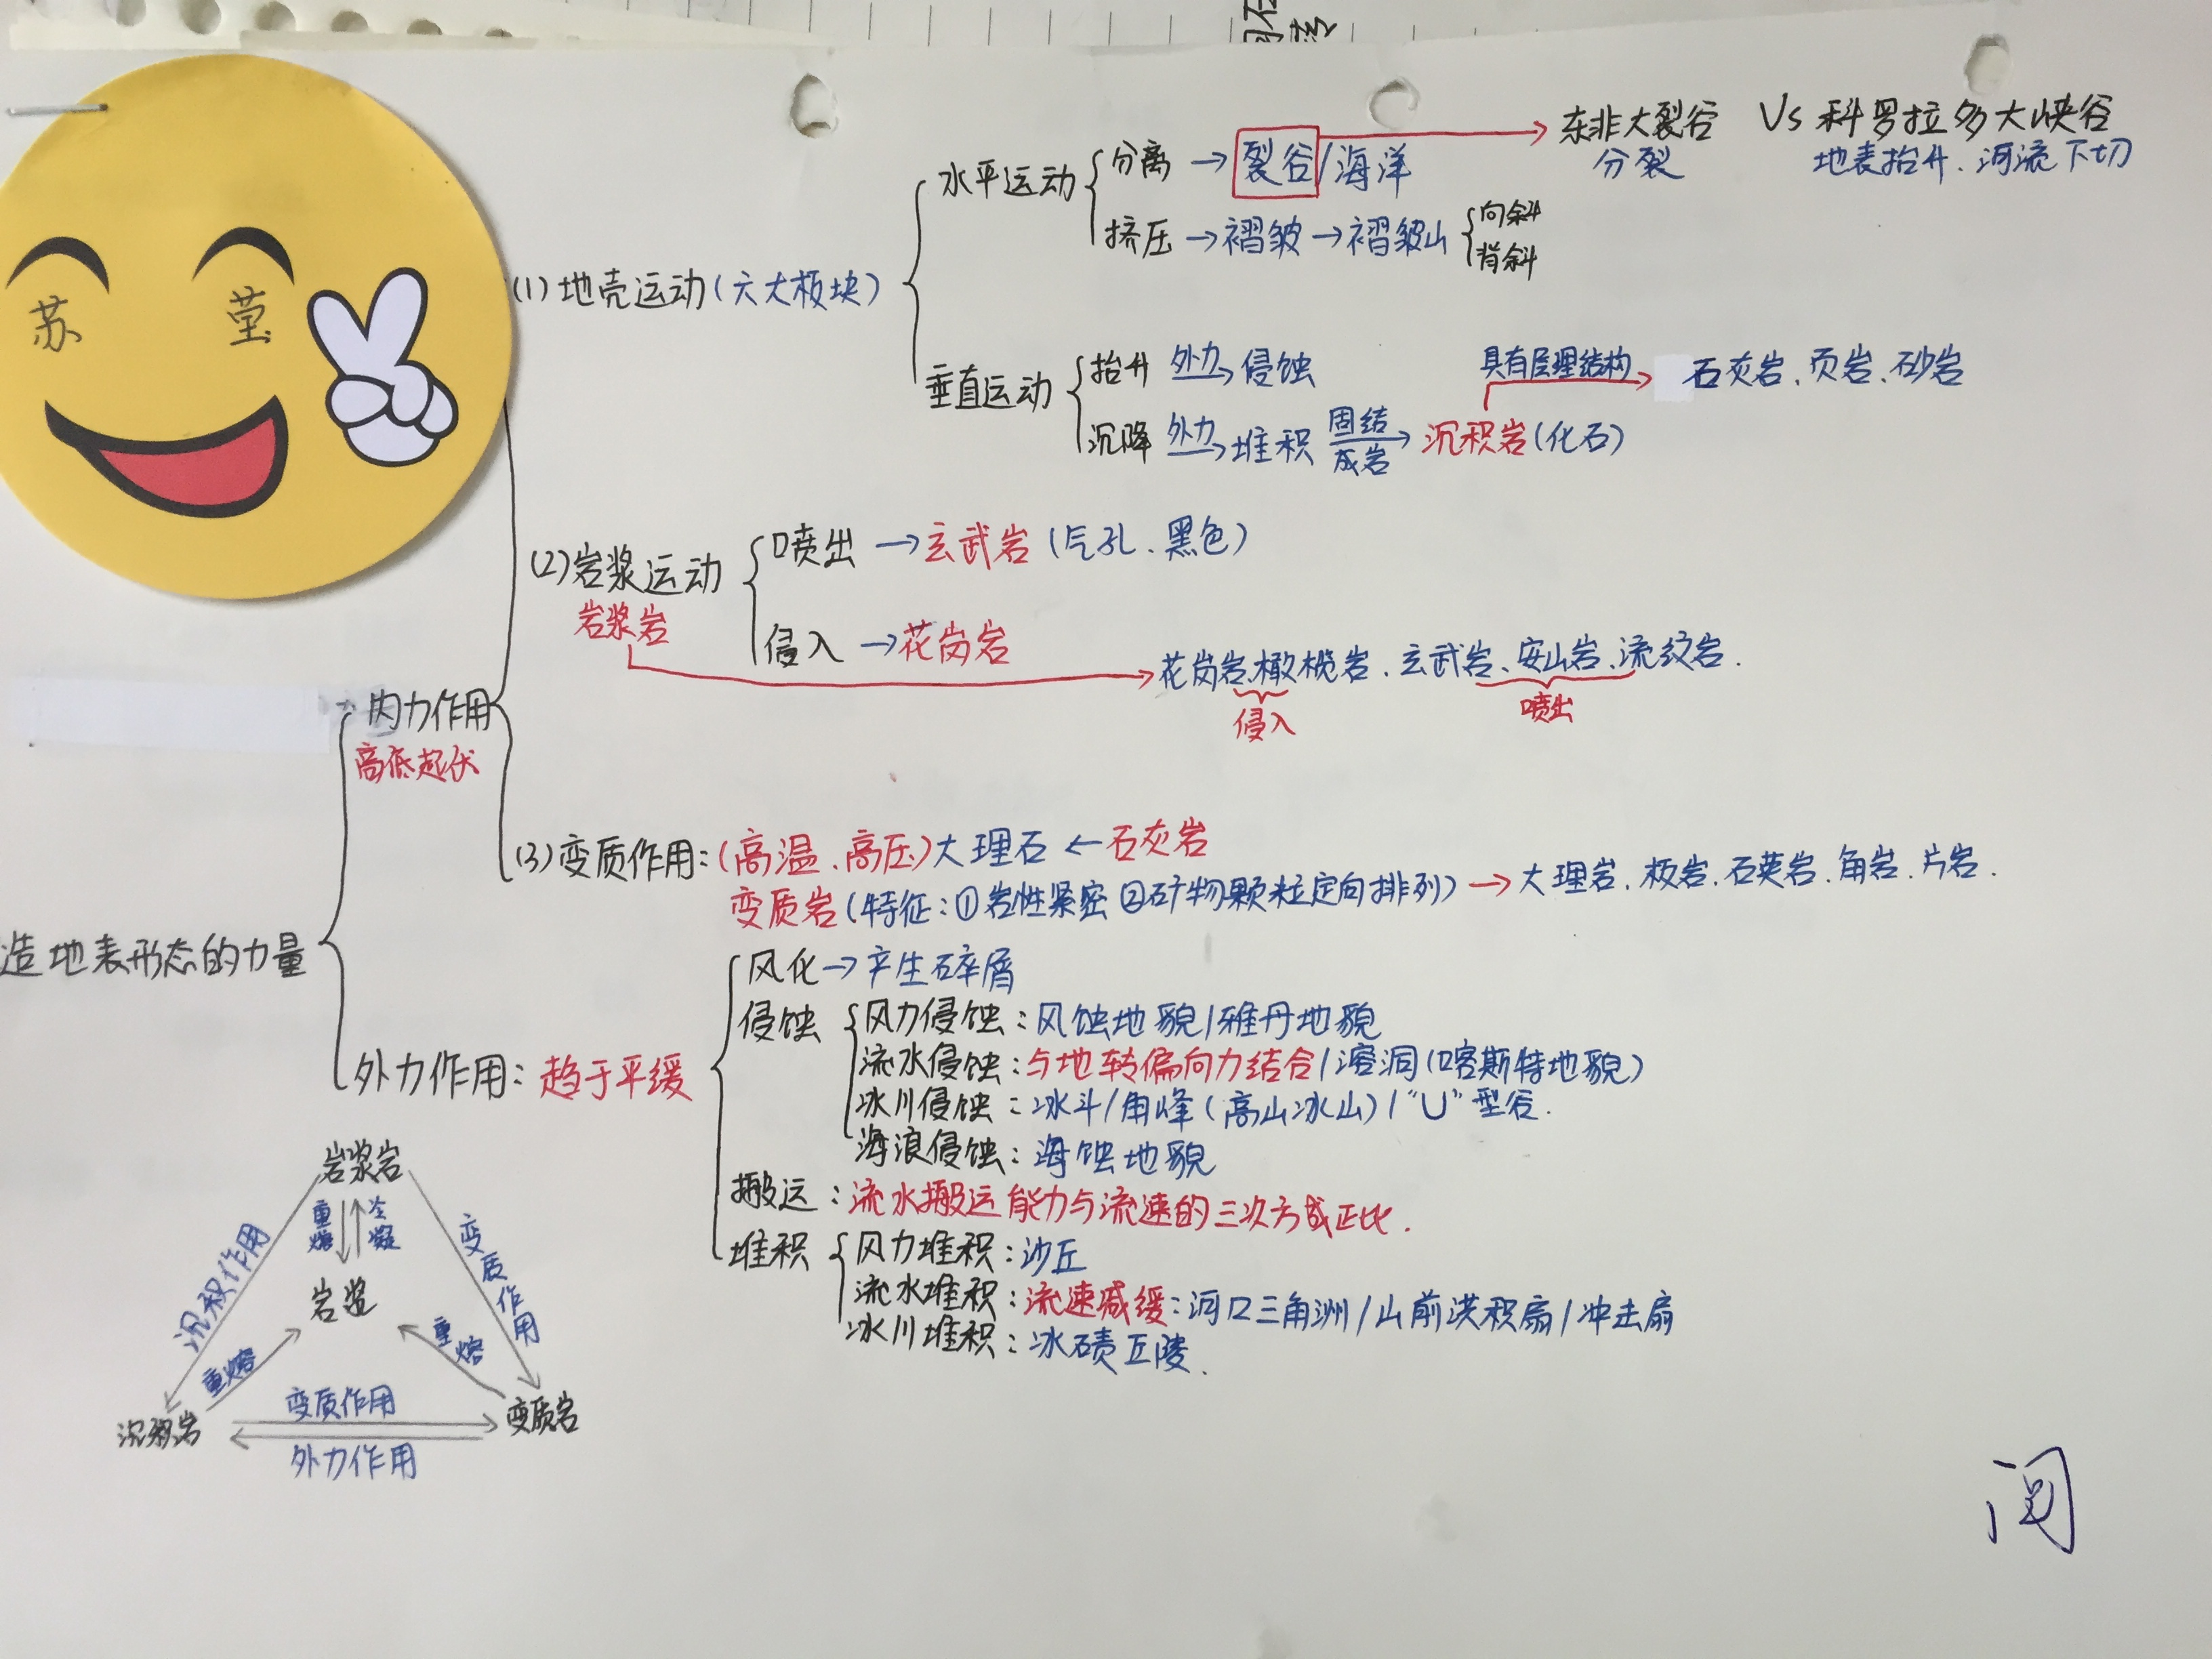 苏 莹
东非大裂谷 Vs 科罗拉多大峡谷
分裂 地表抬升、河流下切
水平运动 分离 → 裂谷/海洋
挤压 → 褶皱 → 褶皱山 向斜
背斜
(1) 地壳运动(六大板块)
垂直运动 抬升 外力→ 侵蚀
具有层理结构 → 石灰岩、页岩、砂岩
沉降 外力→ 堆积 固结成岩→ 沉积岩(化石)
(2) 岩浆运动 喷出 → 玄武岩 (气孔、黑色)
岩浆岩
侵入 → 花岗岩
花岗岩、橄榄岩、玄武岩、安山岩、流纹岩.
侵入 喷出
内力作用
高低起伏
(3) 变质作用: (高温、高压) 大理石 ← 石灰岩
变质岩 (特征: ①岩性紧密 ②矿物颗粒定向排列) → 大理岩、板岩、石英岩、角岩、片岩.
造地表形态的力量
外力作用: 趋于平缓
风化 → 产生碎屑
侵蚀 风力侵蚀: 风蚀地貌/雅丹地貌
流水侵蚀: 与地转偏向力结合/溶洞(喀斯特地貌)
冰川侵蚀: 冰斗/角峰(高山冰山)/"U"型谷.
海浪侵蚀: 海蚀地貌
搬运: 流水搬运能力与流速的三次方成正比.
堆积 风力堆积: 沙丘
流水堆积: 流速减缓: 河口三角洲/山前洪积扇/冲击扇
冰川堆积: 冰碛丘陵.
岩浆岩
重熔 冷凝
沉积作用 变质作用
岩浆
重熔 重熔
沉积岩 变质作用 变质岩
外力作用
阅